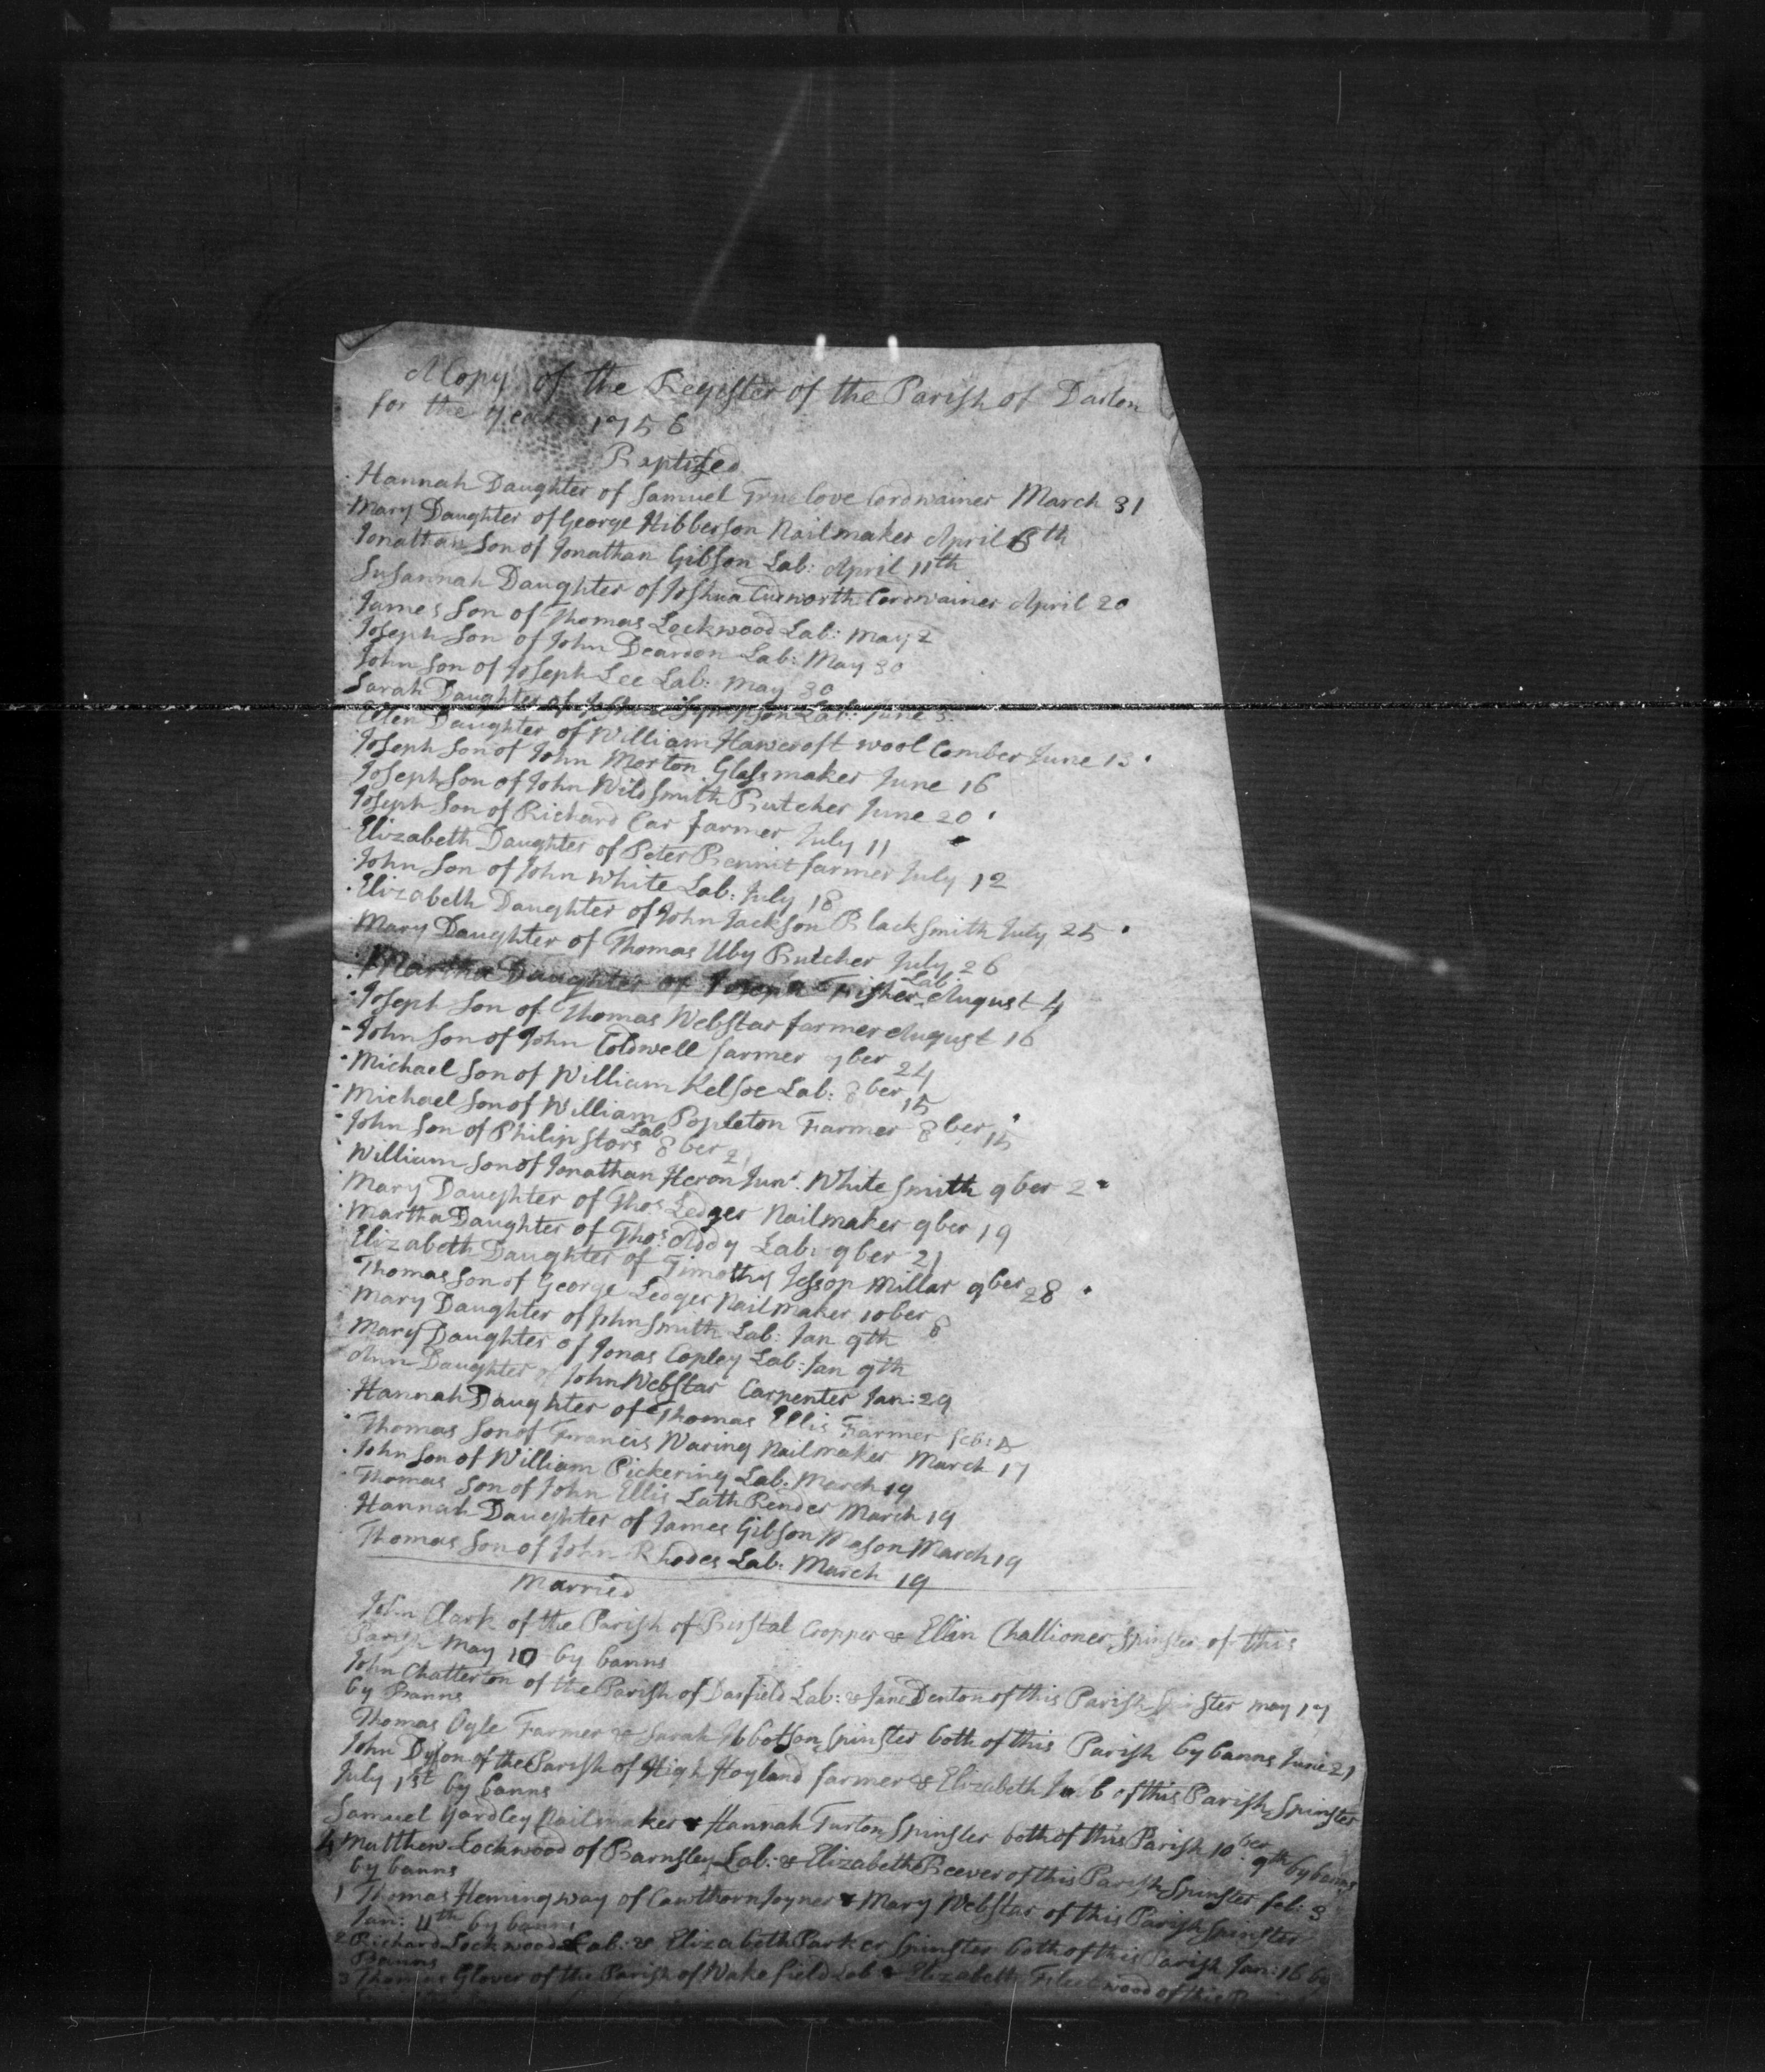 A Copy of the Register of the Parish of Darton
for the year 1756
Baptized
Hannah Daughter of Samuel Truelove Cordwainer March 31
Mary Daughter of George Hibberson Nailmaker April 8th
Jonathan Son of Jonathan Gibson Lab: April 11th
Susannah Daughter of Joshua Cudworth Cordwainer April 20
James Son of Thomas Lockwood Lab: May 2
Joseph Son of John Deardon Lab: May 30
John Son of Joseph Lee Lab: May 30
Sarah Daughter of Lab: June 3
Elen Daughter of William Hawcroft wool Comber June 13
Joseph Son of John Morton Glassmaker June 16
Joseph Son of John Wildsmith Butcher June 20
Joseph Son of Richard Car farmer July 11
Elizabeth Daughter of Peter Bennit farmer July 12
John Son of John White Lab: July 18
Elizabeth Daughter of John Jackson Black Smith July 25
Mary Daughter of Thomas Uby Butcher July 26
Martha Daughter of Joseph Fisher Lab August 4
Joseph Son of Thomas Webstar farmer August 16
John Son of John Coldwell farmer 7ber 24
Michael Son of William Kelsoe Lab: 8ber 15
Michael Son of William Popleton Farmer 8ber 15
John Son of Philip Stors Lab 8ber 21
William Son of Jonathan Heron Junr. White Smith 9ber 2
Mary Daughter of Thos Ledger Nailmaker 9ber 19
Martha Daughter of Thos: Addy Lab: 9ber 21
Elizabeth Daughter of Timothy Jessop Millar 9ber 28
Thomas Son of George Ledger Nailmaker 10ber 8
Mary Daughter of John Smith Lab: Jan 9th
Mary Daughter of Jonas Copley Lab: Jan 9th
Ann Daughter of John Webstar Carpenter Jan: 29
Hannah Daughter of Thomas Ellis Farmer feb:
Thomas Son of Francis Waring Nailmaker March 17
John Son of William Pickering Lab: March 19
Thomas Son of John Ellis Lath Render March 19
Hannah Daughter of James Gibson Mason March 19
Thomas Son of John Rhodes Lab: March 19
Married
John Clark of the Parish of Birstal Cropper & Ellin Challioner Spinster of this
Parish May 10 by banns
John Chatterton of the Parish of Darfield Lab: & Jane Denton of this Parish Spinster may 17
by Banns
Thomas Ogle Farmer & Sarah Ibbotson Spinster both of this Parish by banns June 21
John Dyson of the Parish of High Hoyland farmer & Elizabeth of this Parish Spinster
July 1st by banns
Samuel Yardley Nailmaker & Hannah Turton Spinster both of this Parish 10ber 9th by banns
4 Matthew Lockwood of Barnsley Lab: & Elizabeth Beever of this Parish Spinster feb: 3
by banns
1 Thomas Hemingway of Cawthorn Joyner & Mary Webstar of this Parish Spinster
Jan: 11th by banns
2 Richard Lockwood Lab: & Elizabeth Parker Spinster both of this Parish Jan: 16 by
Banns
3 Thomas Glover of the Parish of Wakefield Lab & Elizabeth Fleetwood of this